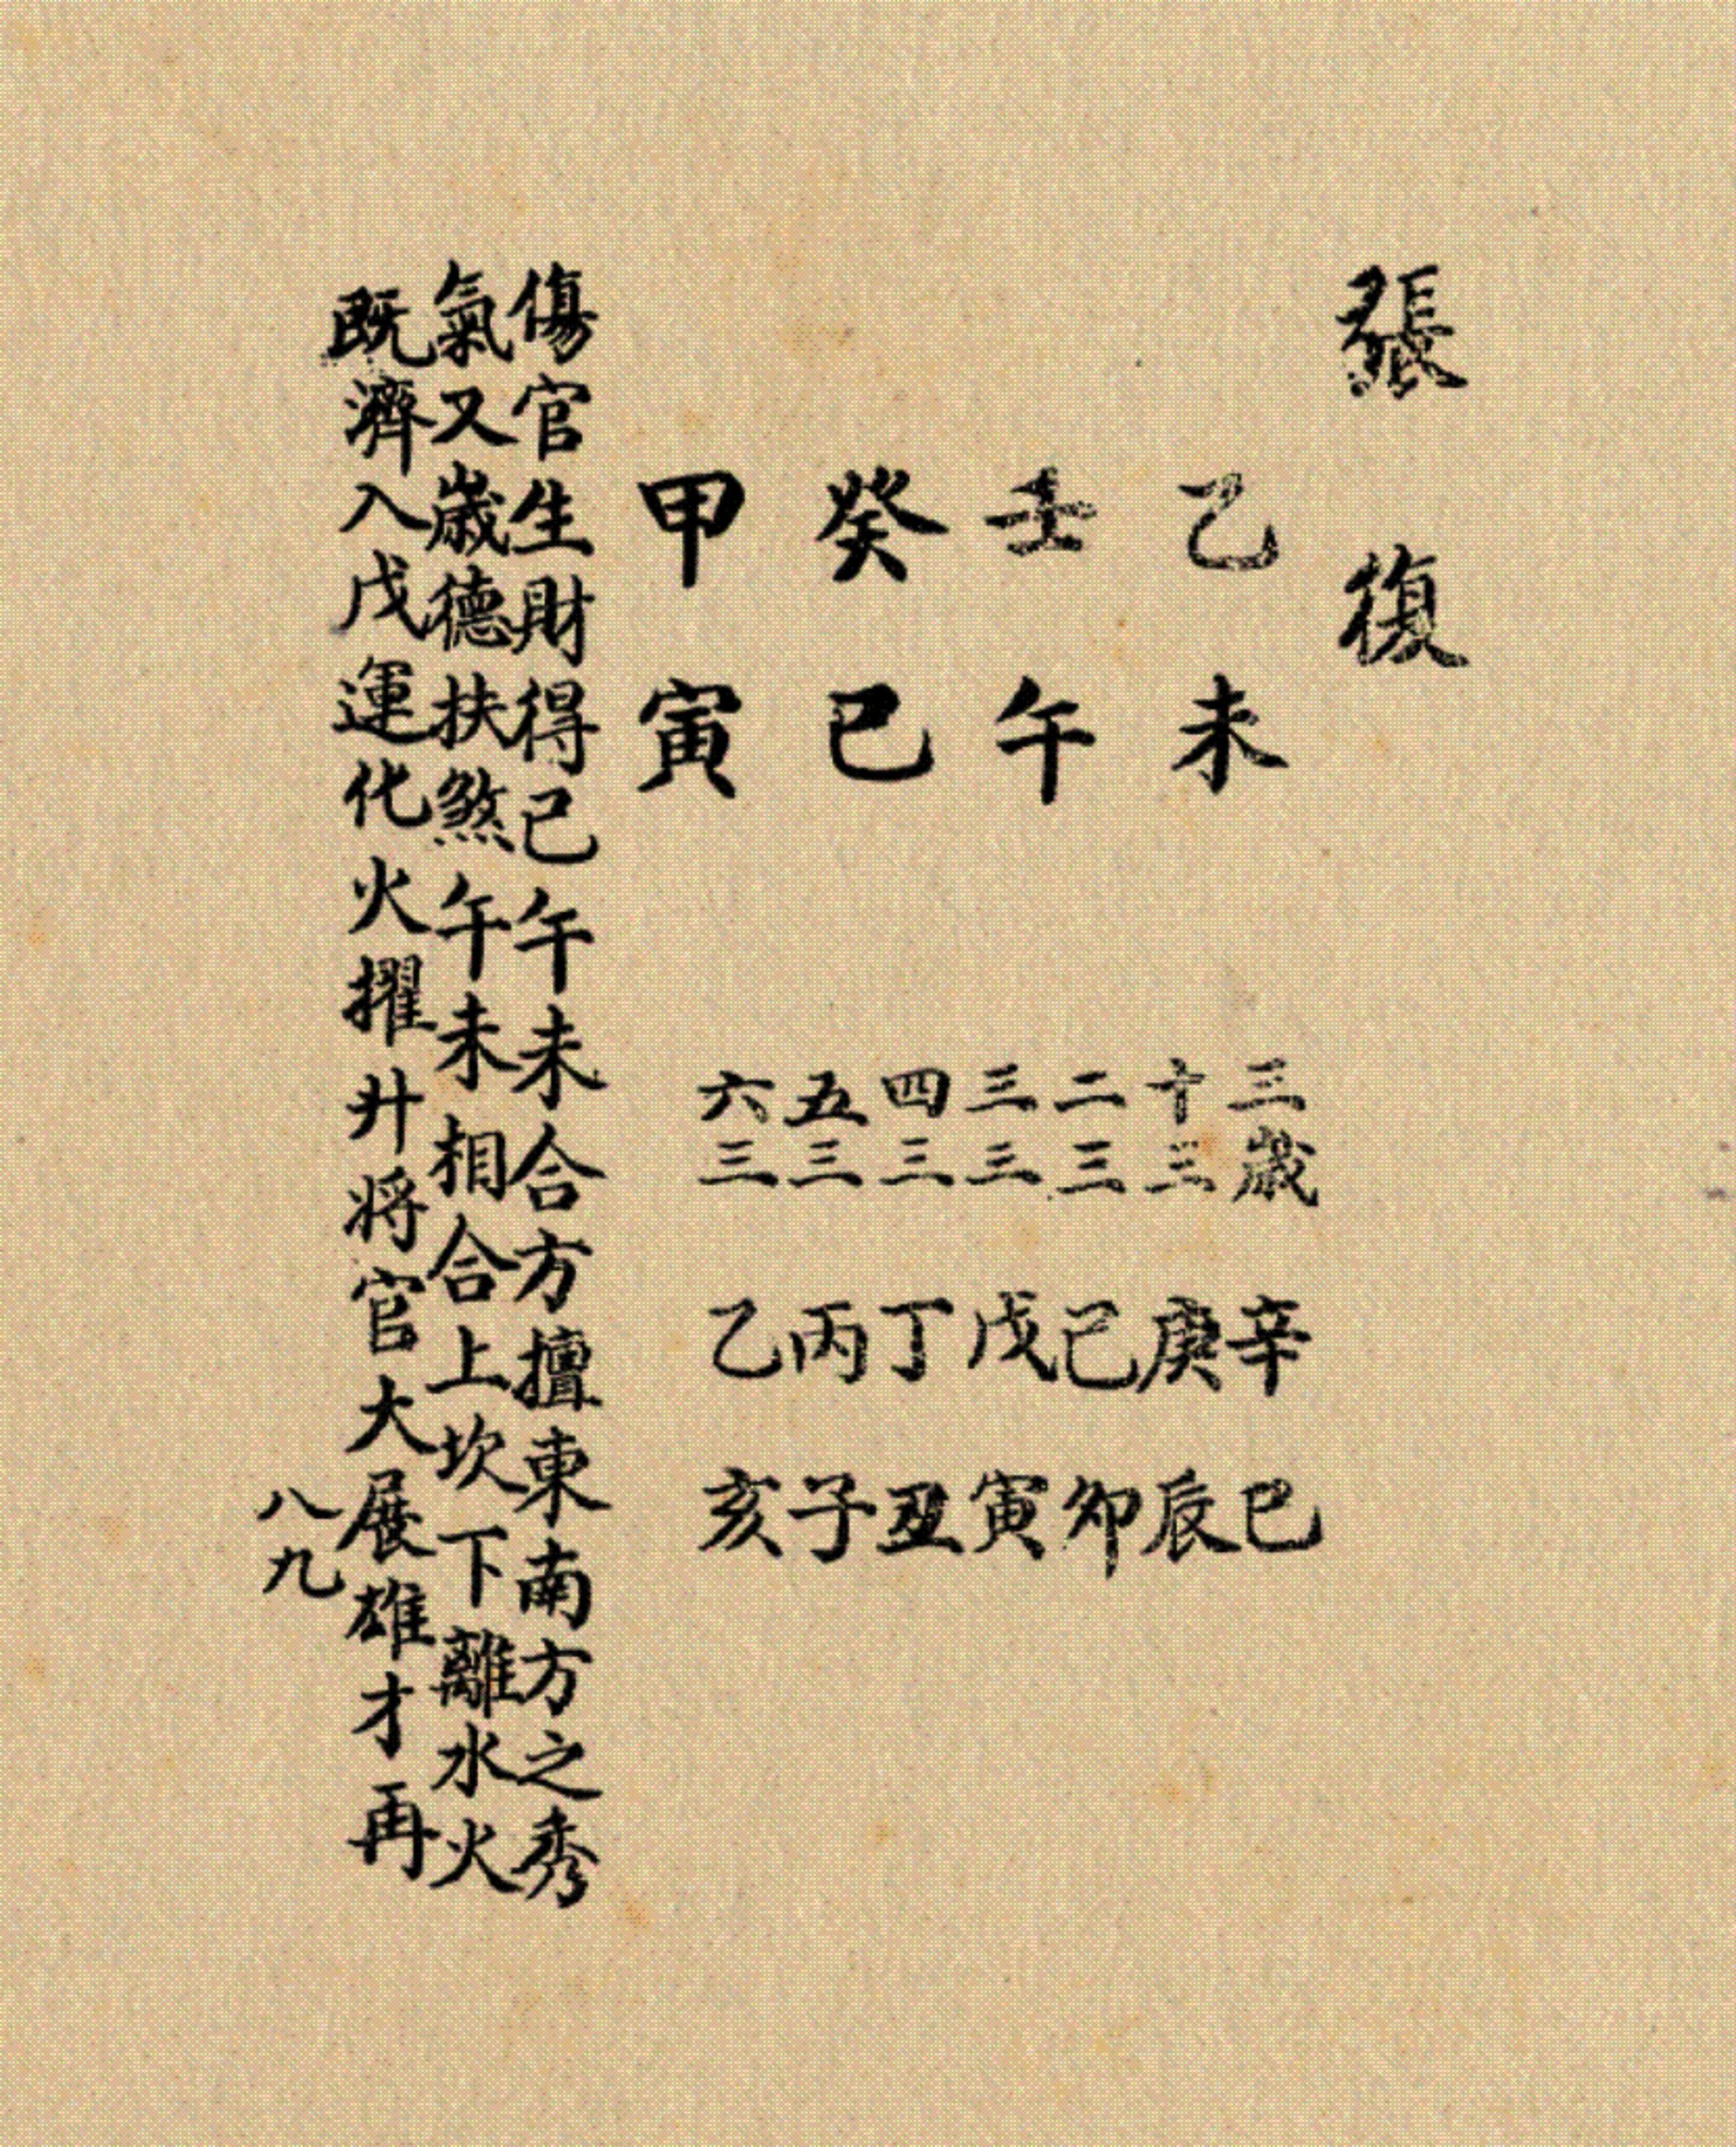 張復
乙未
壬午
癸巳
甲寅
三歲 辛巳
十三 庚辰
二三 己卯
三三 戊寅
四三 丁丑
五三 丙子
六三 乙亥
傷官生財得巳午未合方擅東南方之秀
氣又歲德扶煞午未相合上坎下離水火
既濟入戊運化火擢升將官大展雄才再
八九